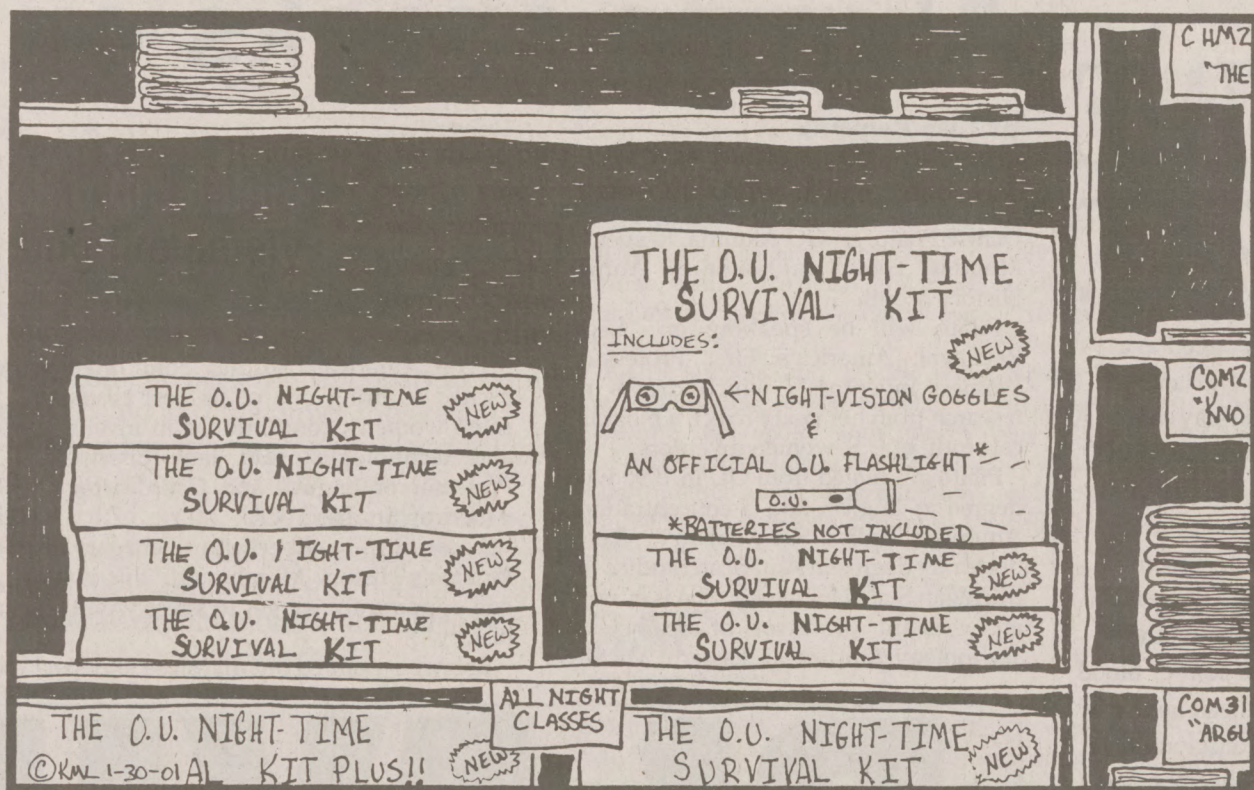 CHM2
"THE
THE O.U. NIGHT-TIME
SURVIVAL KIT
INCLUDES:
NEW
←NIGHT-VISION GOGGLES
&
AN OFFICIAL O.U. FLASHLIGHT*
O.U.
*BATTERIES NOT INCLUDED
THE O.U. NIGHT-TIME
SURVIVAL KIT
NEW
THE O.U. NIGHT-TIME
SURVIVAL KIT
NEW
THE O.U. NIGHT-TIME
SURVIVAL KIT
NEW
THE O.U. NIGHT-TIME
SURVIVAL KIT
NEW
THE O.U. IGHT-TIME
SURVIVAL KIT
NEW
THE O.U. NIGHT-TIME
SURVIVAL KIT
NEW
COM2
"KNO
ALL NIGHT
CLASSES
THE O.U. NIGHT-TIME
AL KIT PLUS!!
NEW
©KML 1-30-01
THE O.U. NIGHT-TIME
SURVIVAL KIT
NEW
COM31
"ARGU